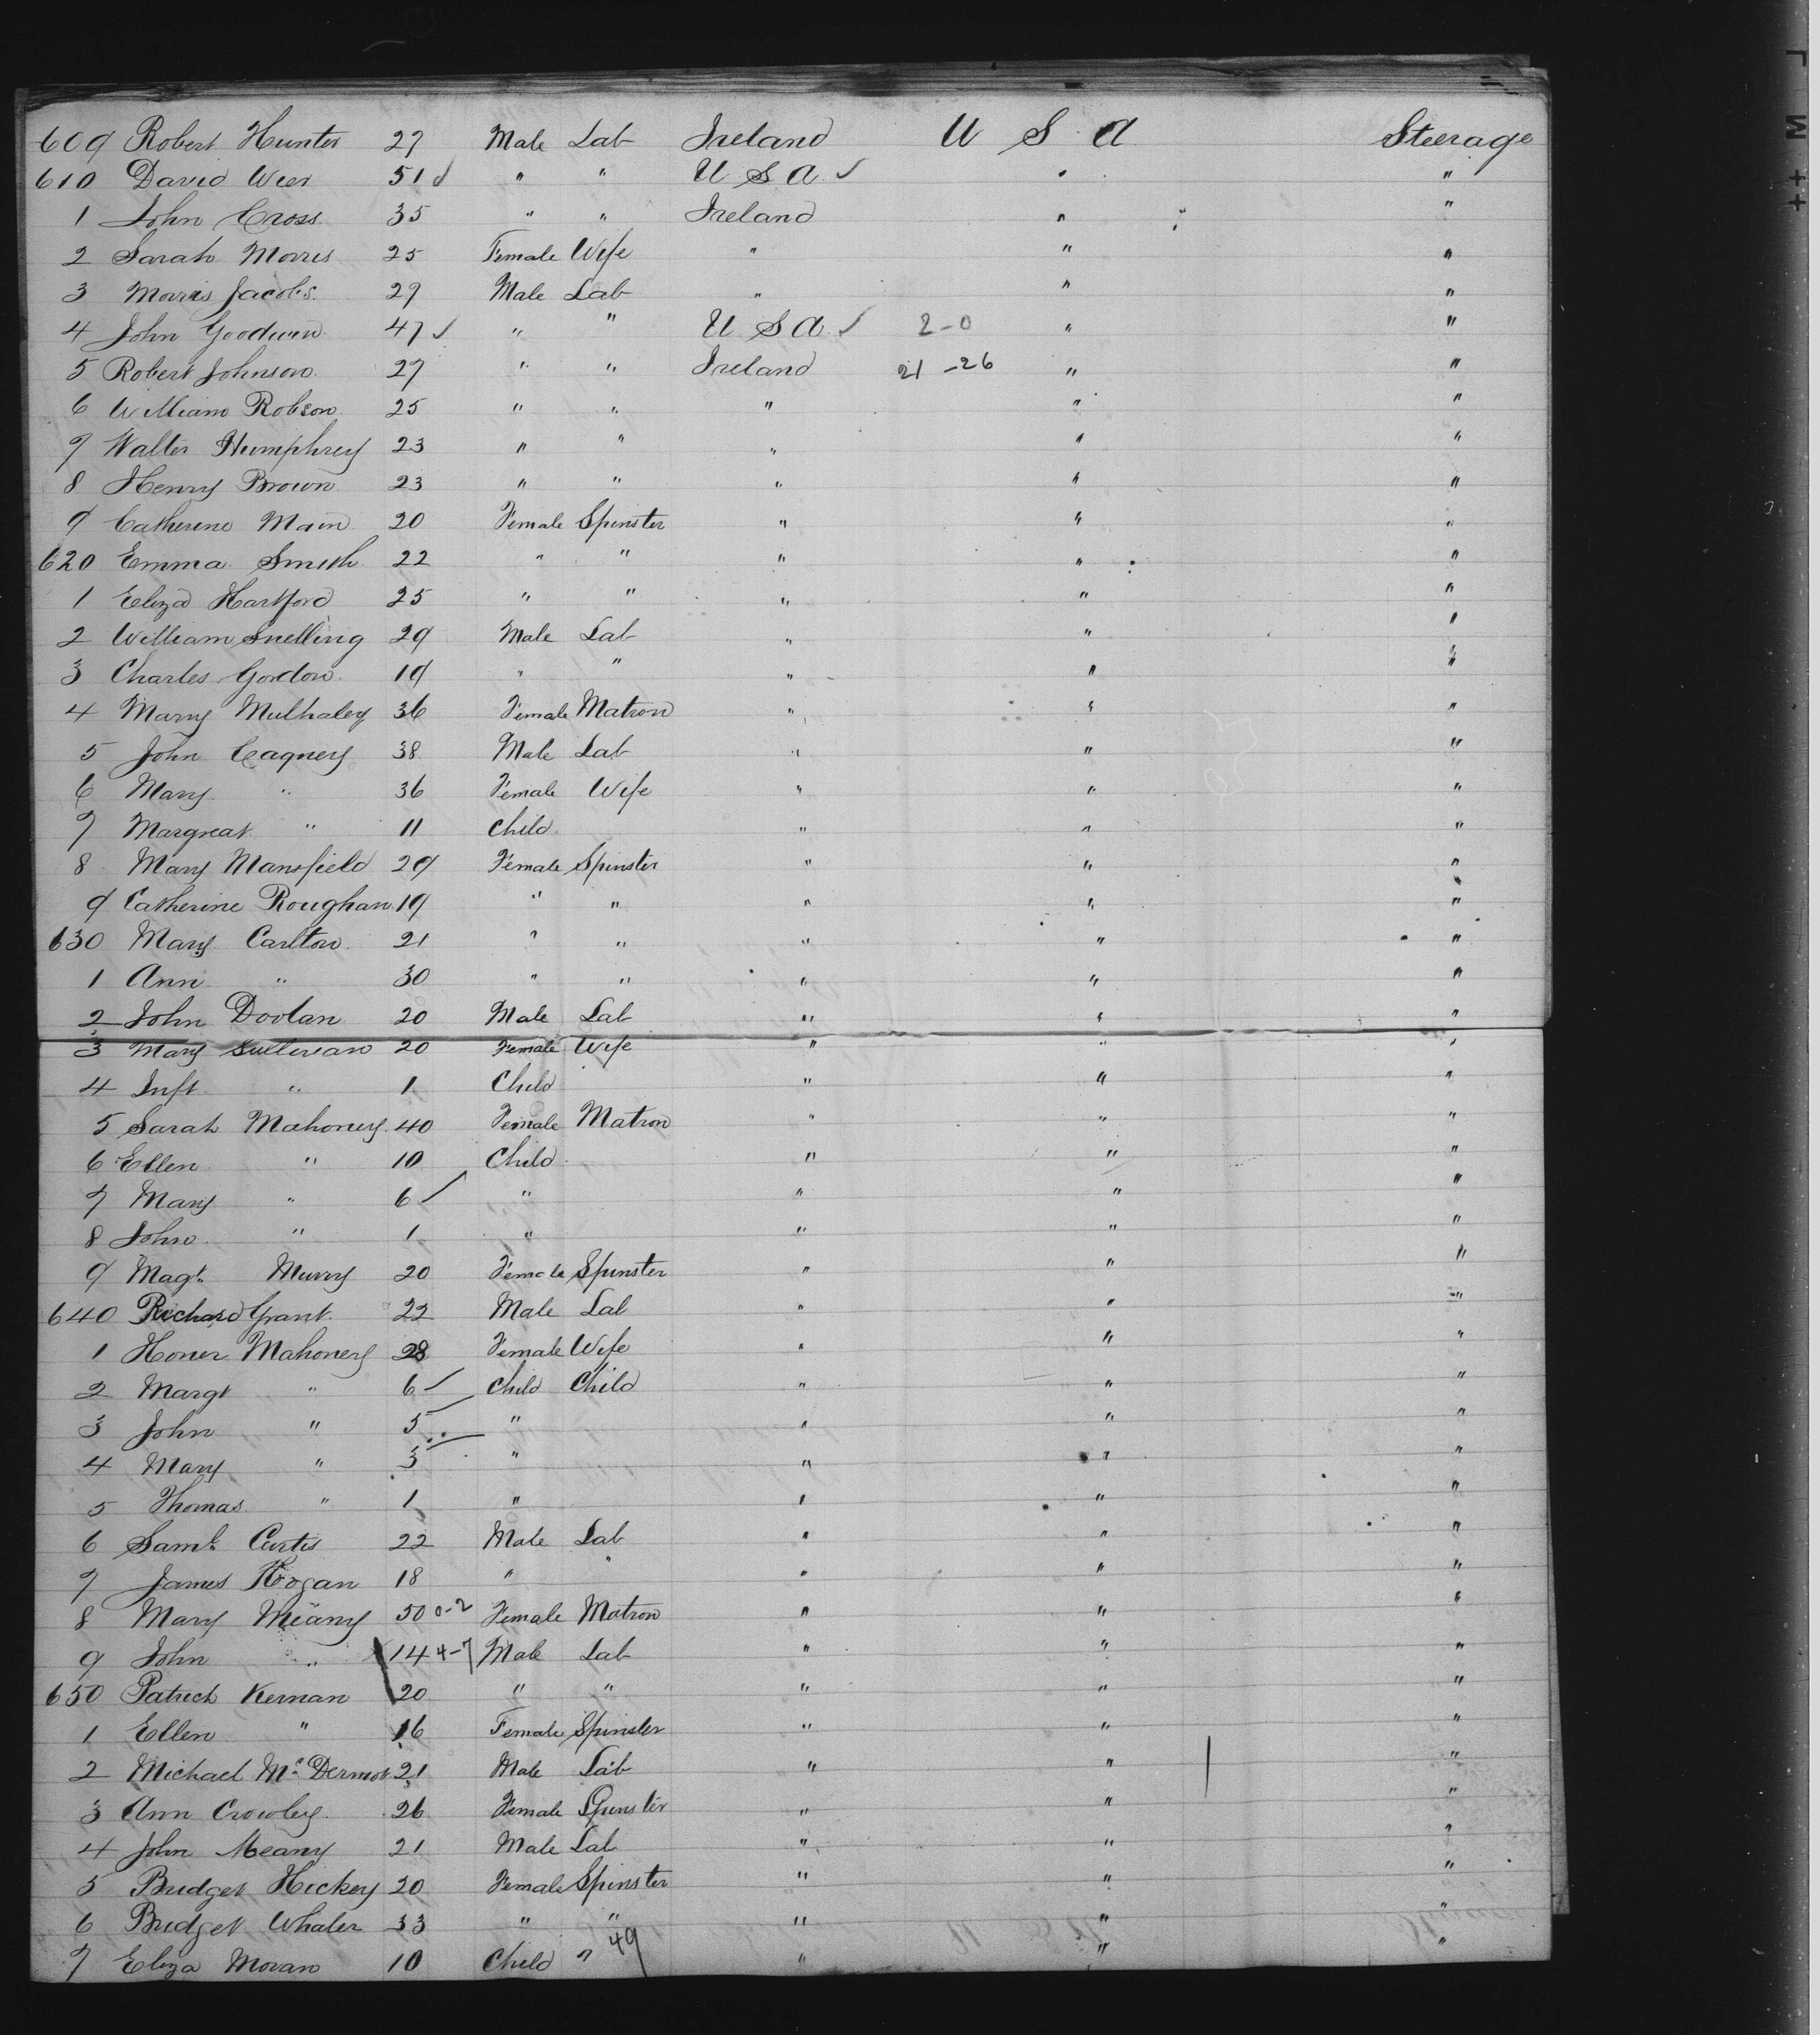 609 Robert Hunter 27 Male Lab Ireland U S A Steerage
610 David Wier 51 ✓ " " U S A ✓ " "
1 John Cross 35 " " Ireland " "
2 Sarah Morris 25 Female Wife " " "
3 Morris Jacobs 29 Male Lab " " "
4 John Goodwin 47 ✓ " " U S A ✓ 2-0 " "
5 Robert Johnson 27 " " Ireland 21-26 " "
6 William Robson 25 " " " " "
7 Walter Humphrey 23 " " " " "
8 Henry Brown 23 " " " " "
9 Catherine Main 20 Female Spinster " " "
620 Emma Smith 22 " " " " "
1 Eliza Hartford 25 " " " " "
2 William Snelling 29 Male Lab " " "
3 Charles Gordon 19 " " " " "
4 Mary Mulhaley 36 Female Matron " " "
5 John Cagney 38 Male Lab " " "
6 Mary " 36 Female Wife " " "
7 Margreat " 11 Child " " "
8 Mary Mansfield 29 Female Spinster " " "
9 Catherine Roughan 19 " " " " "
630 Mary Carlton 21 " " " " "
1 Ann " 30 " " " " "
2 John Doolan 20 Male Lab " " "
3 Mary Sullivan 20 Female Wife " " "
4 Inft " 1 Child " " "
5 Sarah Mahoney 40 Female Matron " " "
6 Ellen " 10 Child " " "
7 Mary " 6 ✓ " " " "
8 John " 1 " " " "
9 Magt. Murry 20 Female Spinster " " "
640 Richard Grant 22 Male Lab " " "
1 Honer Mahoney 28 Female Wife " " "
2 Margt " 6 ✓ Child Child " " "
3 John " 5 " " " "
4 Mary " 3 " " " "
5 Thomas " 1 " " " "
6 Saml. Curtis 22 Male Lab " " "
7 James Hogan 18 " " " " "
8 Mary Meany 50 0-2 Female Matron " " "
9 John " 14 4-7 Male Lab " " "
650 Patrick Kernan 20 " " " " "
1 Ellen " 16 Female Spinster " " "
2 Michael McDermot 21 Male Lab " " "
3 Ann Crowley 26 Female Spinster " " "
4 John Meany 21 Male Lab " " "
5 Bridget Hickey 20 Female Spinster " " "
6 Bridget Whaler 33 " " " " "
7 Eliza Moran 10 Child " 49 " " "